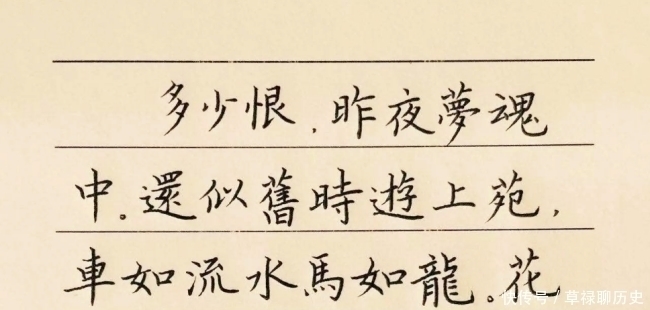 多少恨,昨夜夢魂
中。還似舊時遊上苑,
車如流水馬如龍。花
快传号/草禄聊历史